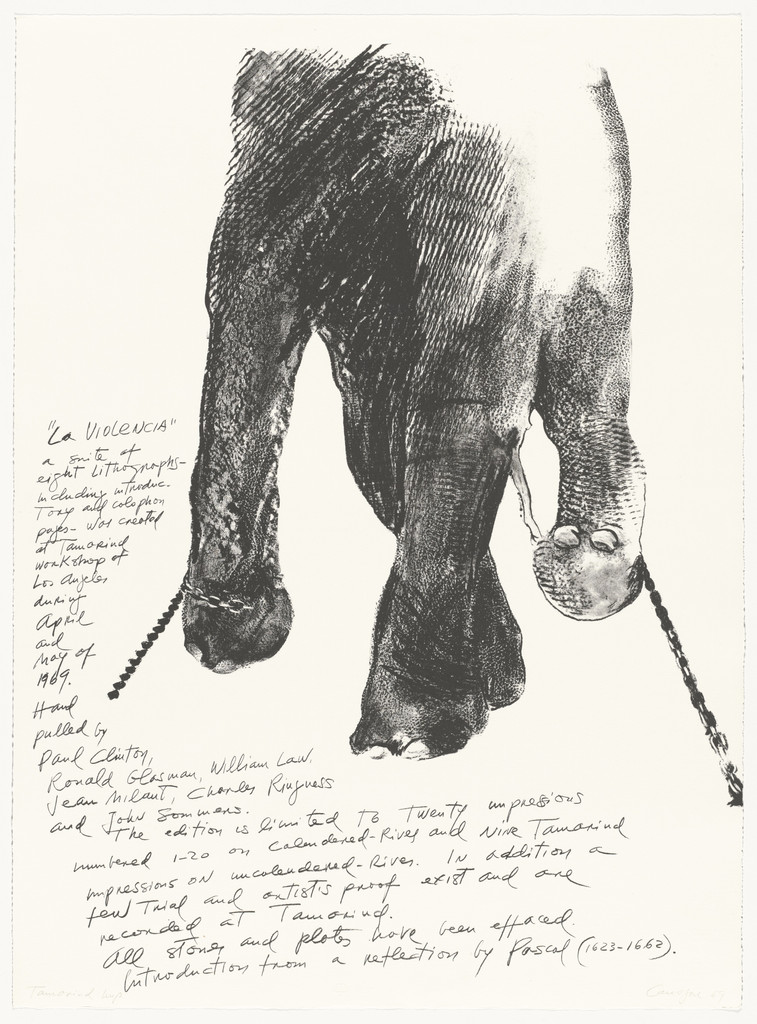 "La VIOLENCIA"
a suite of
eight Lithographs-
including introduc-
Tory and colophon
pages- was created
at Tamarind
workshop of
Los Angeles
during
April
and
May of
1969.
Hand
pulled by
Paul Clinton,
Ronald Glasman, William Law.
Jean Milant, Charles Ringness
and John Sommers.
The edition is limited To Twenty impressions
numbered 1-20 on calendered-Rives and nine Tamarind
impressions on uncalendered-Rives. In addition a
few Trial and artist's proof exist and are
recorded at Tamarind.
All stones and plates have been effaced.
Introduction from a reflection by Pascal (1623-1662).
Tamarind Imp